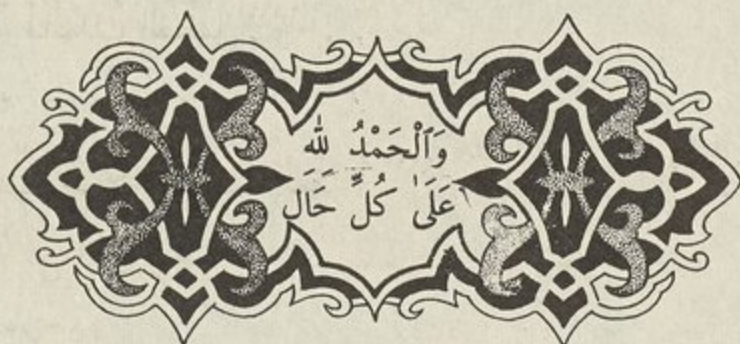 وَٱلْحَمْدُ لله
عَلَىٰ كُلِّ حَالَ